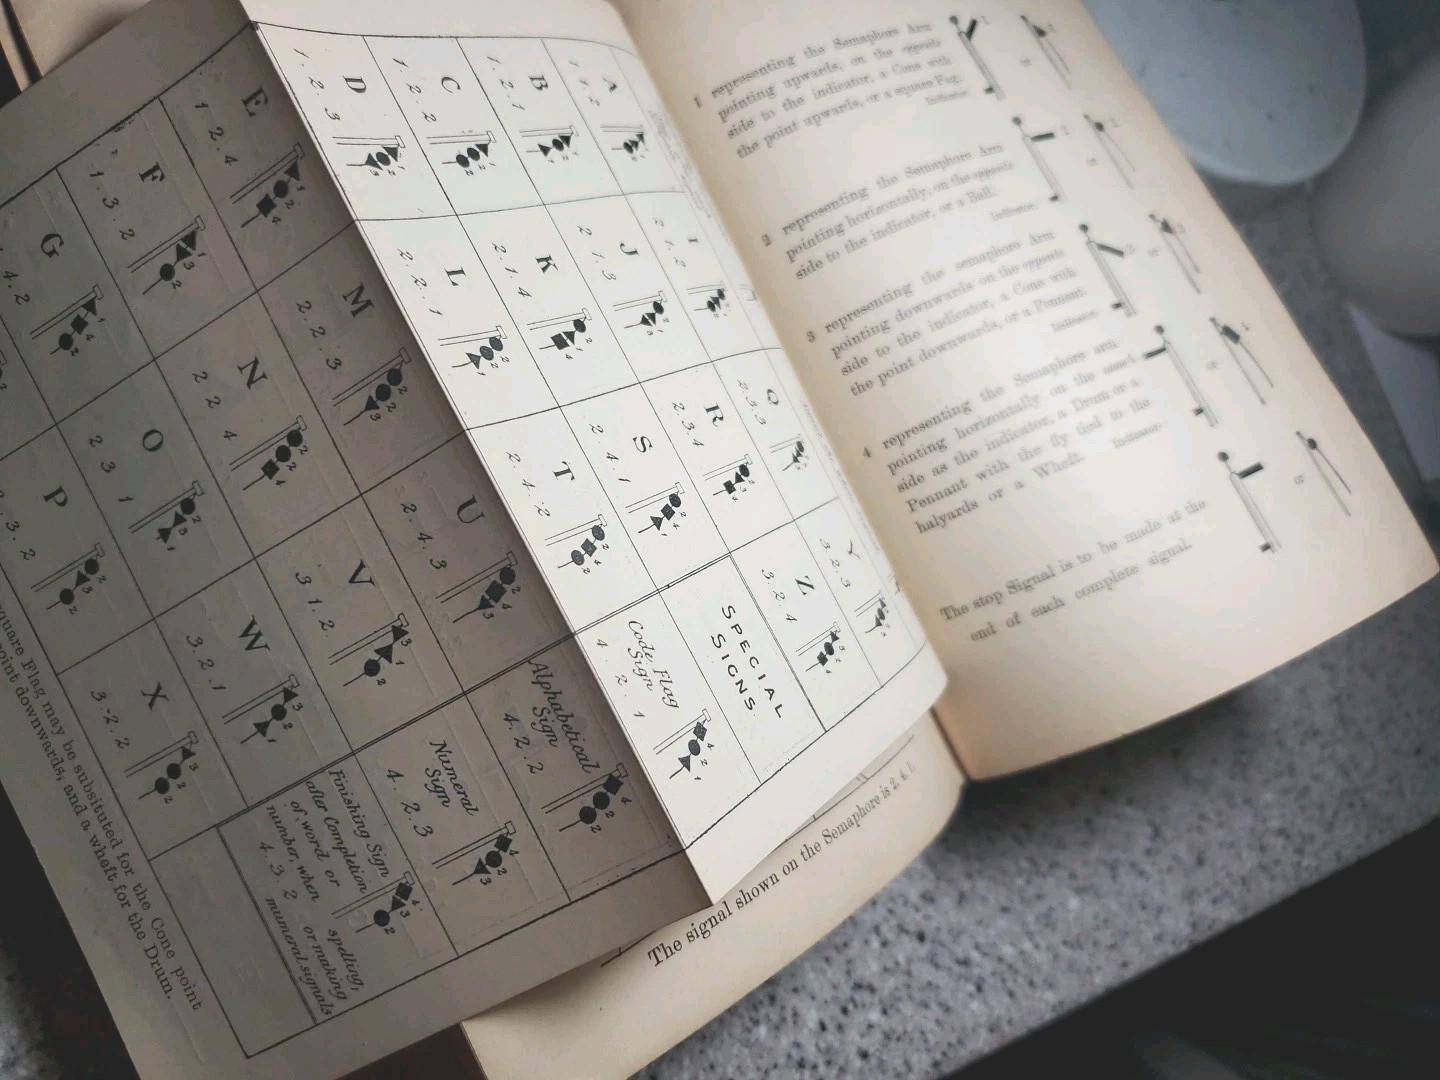 1 representing the Semaphore Arm
pointing upwards, on the opposite
side to the indicator, a Cone with
the point upwards, or a square Fag.
Indicator.
2 representing the Semaphore Arm
pointing horizontally, on the opposite
side to the indicator, or a Ball.
Indicator.
3 representing the semaphore Arm
pointing downwards on the opposite
side to the indicator, a Cone with
the point downwards, or a Pennant.
Indicator.
4 representing the Semaphore arm
pointing horizontally on the same
side as the indicator, a Drum or a
Pennant with the fly tied to the
halyards or a Wheft.
Indicator.
The stop Signal is to be made at the
end of each complete signal.
The signal shown on the Semaphore is 2. 4. 1.
A
1. 1. 2
B
1. 2. 1
C
1. 2. 2
D
1. 2. 3
E
1 2. 4
F
1. 3. 2
G
4. 2
I
2 1. 2
J
2. 1. 3
K
2. 1. 4
L
2. 2. 1
M
2. 2. 3
N
2 2 4
O
2 3 1
P
3. 2
Q
2. 3. 3
R
2. 3. 4
S
2. 4. 1
T
2. 4. 2
U
2. 4. 3
V
3 1. 2.
W
3. 2. 1
X
3. 2. 2
Y
3. 2. 3
Z
3. 2. 4
SPECIAL
SIGNS.
Code Flag
Sign
4. 2. 1
Alphabetical
Sign
4. 2. 2
Numeral
Sign
4. 2. 3
Finishing Sign
after Completion
of word or
number, when
4. 3 2
spelling,
or making
numeral signals
square Flag may be subsituted for the Cone point
point downwards, and a wheft for the Drum.